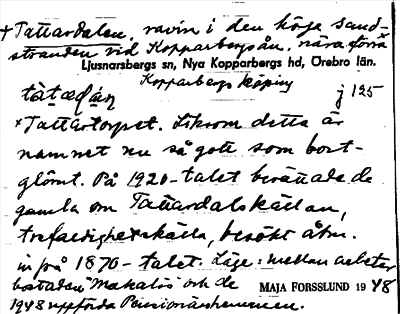 + Tattardalen, ravin i den höga sand-
stranden vid Kopparbergsån, nära förra
Ljusnarsbergs sn, Nya Kopparbergs hd, Örebro län.
Kopparbergs köping
j 125
× Tattartorpet. Liksom detta är
namnet nu så gott som bort-
glömt. På 1920-talet berättade de
gamla om Tattardalskällan,
trefaldighetskälla, besökt åtm.
in på 1870-talet. Läge: mellan arbetar
bostaden "Makalös" och de
1948 uppförda Pensionärshemmen.
MAJA FORSSLUND 1948